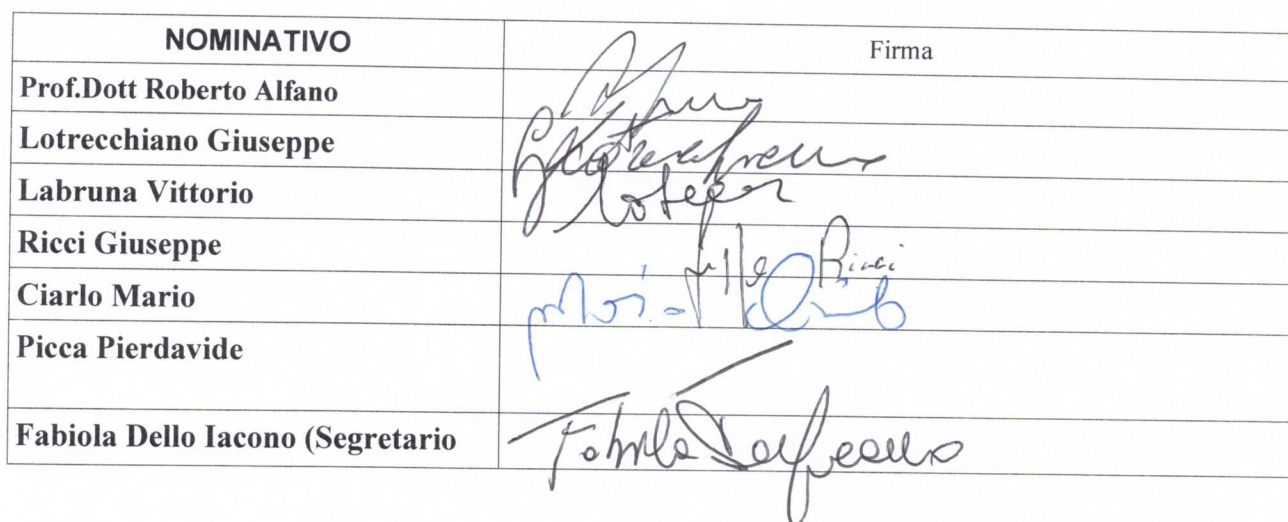 NOMINATIVO Firma
Prof.Dott Roberto Alfano
Lotrecchiano Giuseppe
Labruna Vittorio
Ricci Giuseppe Ricci
Ciarlo Mario
Picca Pierdavide
Fabiola Dello Iacono (Segretario Fabiola